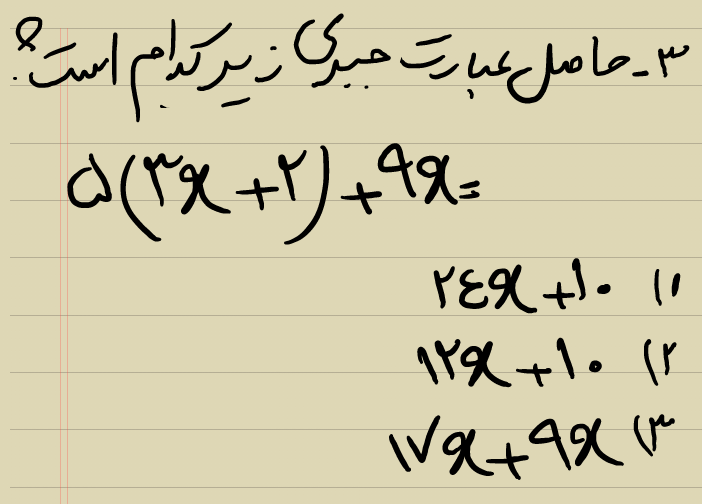 ۳- حاصل عبارت جبری زیر کدام است؟
۵(۳x+۲)+۹x=
۱) ۲۴x+۱۰
۲) ۱۲x+۱۰
۳) ۱۷x+۹x